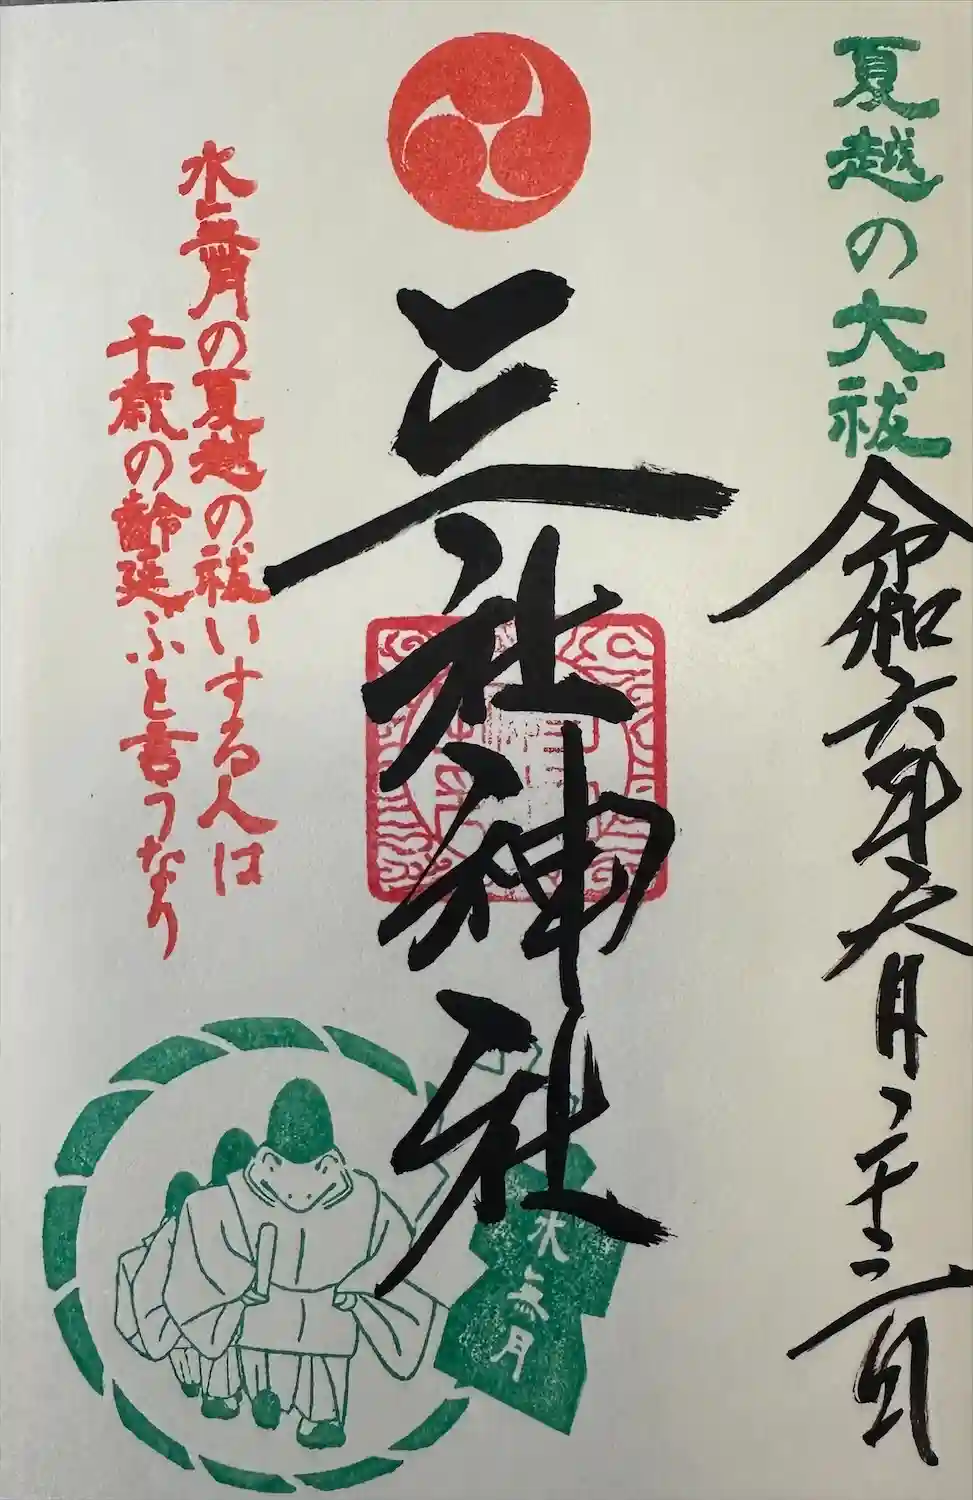 夏越の大祓
令和六年六月二十三日
三社神社
水無月の夏越の祓いする人は
千歳の齢延ぶと言うなり
水無月